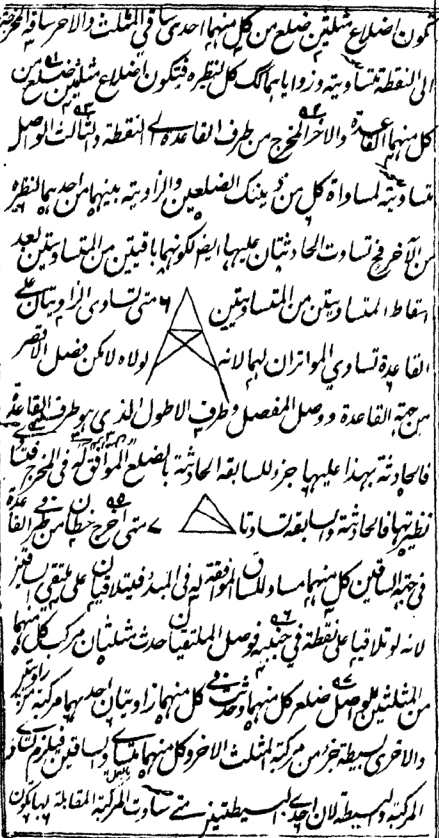 تكون اضلاع مثلثين ضلع من كل منهما احدى ساقى المثلث والاخر ساقه المخرج
الى النقطة متساوية وزواياهما كل لنظيره فيكون اضلاع مثلثين ضلع من
كل منهما القاعدة والاخر المخرج من طرف القاعدة الى النقطة والثالث الواصل
متساوية لمساواة كل من الضلعين والزاوية بينهما من احدهما لنظيره
من الآخر فح تساوت الحادثتان عليها ايضا لكونهما باقيتين من المتساويتين بعد
اسقاط المتساويتين من المتساويتين ٦ متى تساوى الزاويتان على
القاعدة تساوى الموتران لهما لانه لولاه لامكن فصل الاقصر
من جهة القاعدة ووصل المفصل وطرف الاطول الذى هو طرف القاعدة
فالحادثة بهذا عليها جزء للسابقة الحادثة بالضلع الموافق له فى المخرج
نظيرتها فالحادثة والسابقة تساوتا ٧ متى اخرج خطان من طرفى القاعدة
فى جهة الساقين كل منهما مساو للساق الموافقة له فى المبدء فيتلاقيان على ملتقى الساقين
لانه لو تلاقيا على نقطة فى جنبه فوصل الملتقيان حدث مثلثان مركب كل منهما
من المثلثين بالوصل ضلع كل منهما وحدثت كل منهما زاويتان احديهما مركبة
والاخرى بسيطة جزء من مركبة المثلث الاخر وكل منهما متساوى الساقين فيلزم
المركبة والبسيطة لان احدى البسيطتين متى ساوت المركبة المقابلة لها